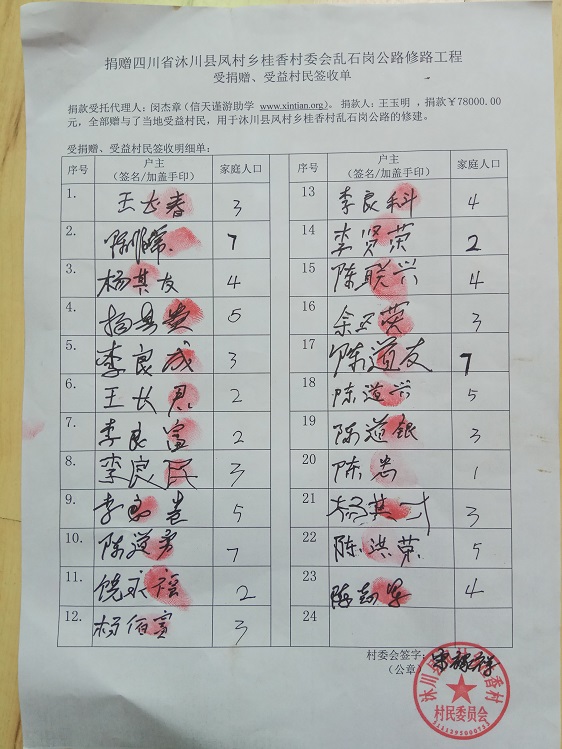 捐赠四川省沐川县凤村乡桂香村委会乱石岗公路修路工程
受捐赠、受益村民签收单
捐款受托代理人：闵杰章（信天谨游助学 www.xintian.org）。捐款人：王玉明，捐款￥78000.00
元，全部赠与了当地受益村民，用于沐川县凤村乡桂香村乱石岗公路的修建。
受捐赠、受益村民签收明细单：
序号 户主（签名/加盖手印） 家庭人口
1. 王长春 3
2. 陈 7
3. 杨其友 4
4. 杨 5
5. 李良成 3
6. 王长君 2
7. 李良富 2
8. 李良民 3
9. 李 5
10. 陈道 7
11. 饶 2
12. 杨佰 3
序号 户主（签名/加盖手印） 家庭人口
13 李良科 4
14 李贤荣 2
15 陈联兴 4
16 余 荣 3
17 陈道友 7
18 陈道兴 5
19 陈道银 3
20 陈 1
21 杨其 3
22 陈洪荣 5
23 陈 军 4
24
村委会签字：
（公章）
沐川县 香村
村民委员会